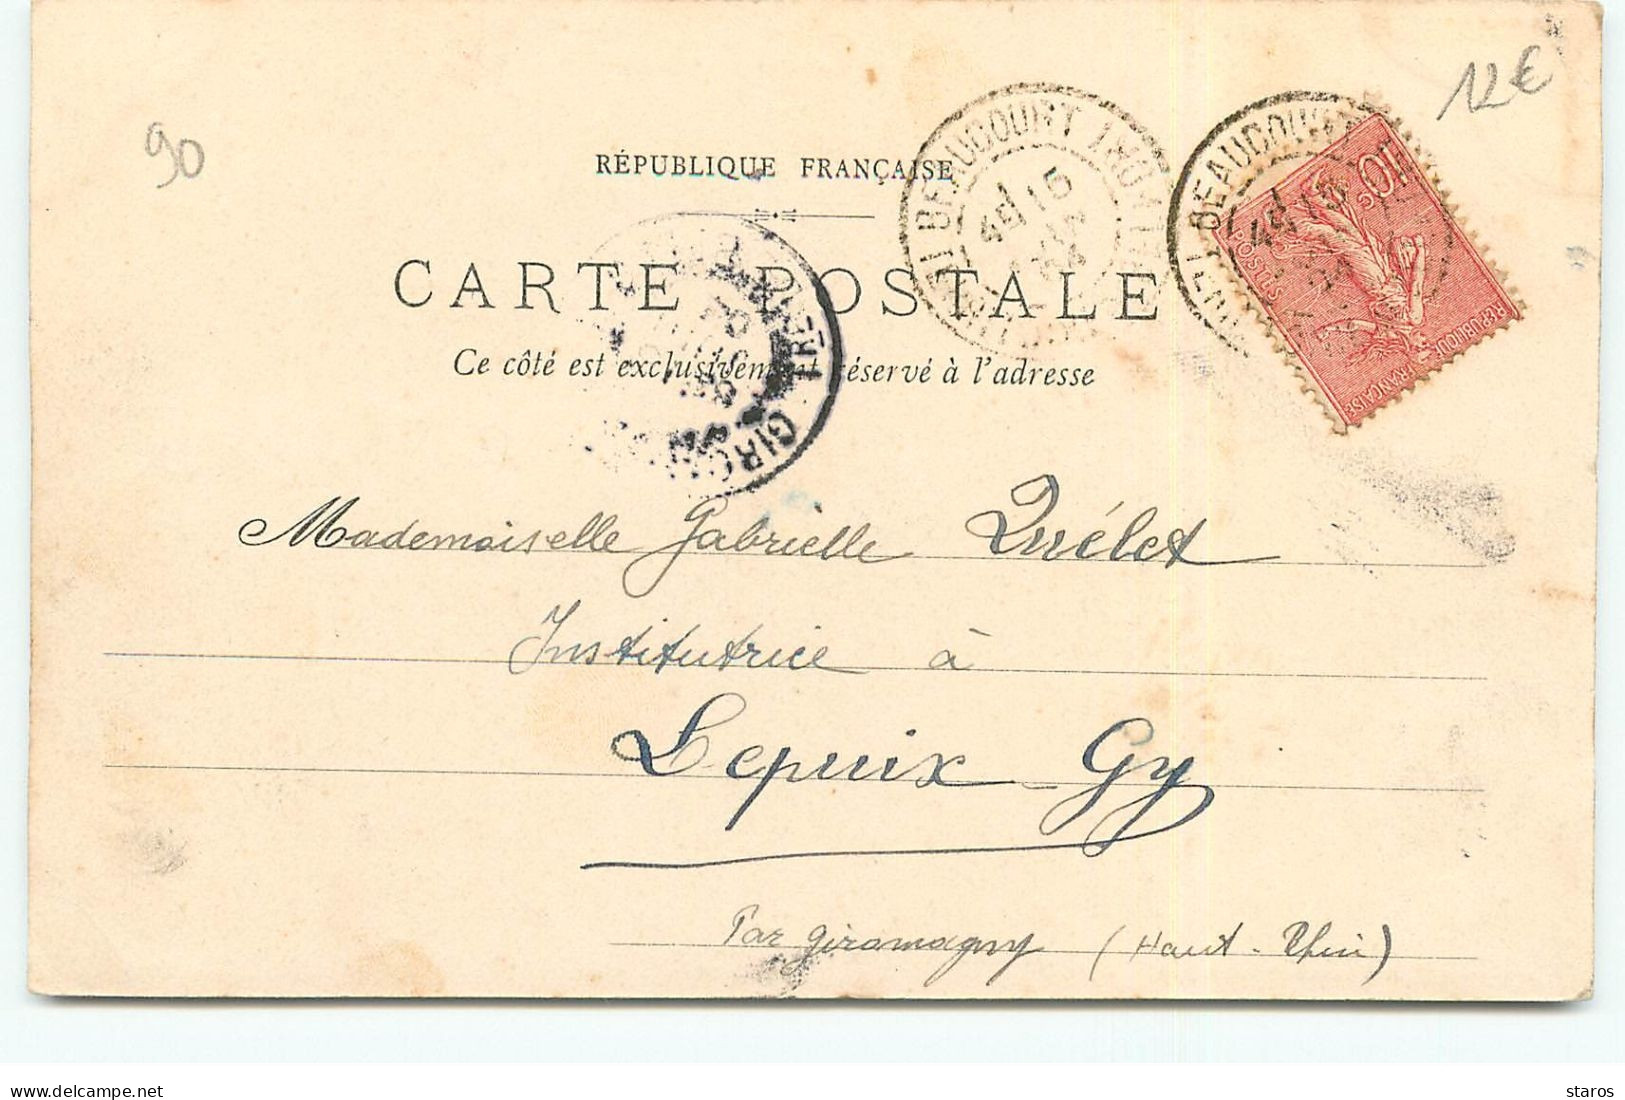 90
12€
RÉPUBLIQUE FRANÇAISE
CARTE POSTALE
Ce côté est exclusivement réservé à l'adresse
BEAUCOURT
BEAUCOURT
10
POSTES
RÉPUBLIQUE FRANÇAISE
Mademoiselle Gabrielle Quélet
Institutrice à
Lepuix-Gy
Par Giromagny (Haut-Rhin)
delcampe.net
staros